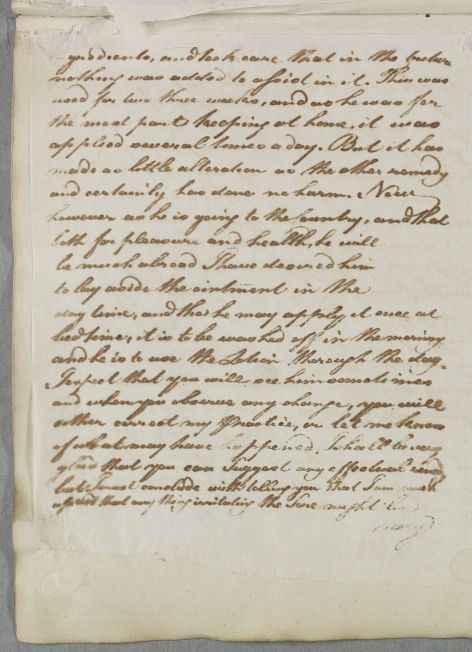 and took care that in the future
nothing was added to afsist in it. This was
used for two three weeks, and as he was for
the most part keeping at home, it was
applied several times a day. But it has
made as little alteration as the other remedy
and certainly has done no harm. Now
however as he is going to the Country, and that
both for pleasure and health, he will
be much abroad I have desired him
to lay aside the ointment in the
day time, and that he may apply it once at
bedtime, it is to be washed off in the morning
and he is to use the Lotion thorough the day.
I expect that you will see him sometimes
and when you observe any change, you will
either correct my Practice, or let me know
of what may have happened. I shall be very
glad that you can Suggest any effectual
but I must conclude with telling you that I am much
afraid that any thing irritating the Sore might